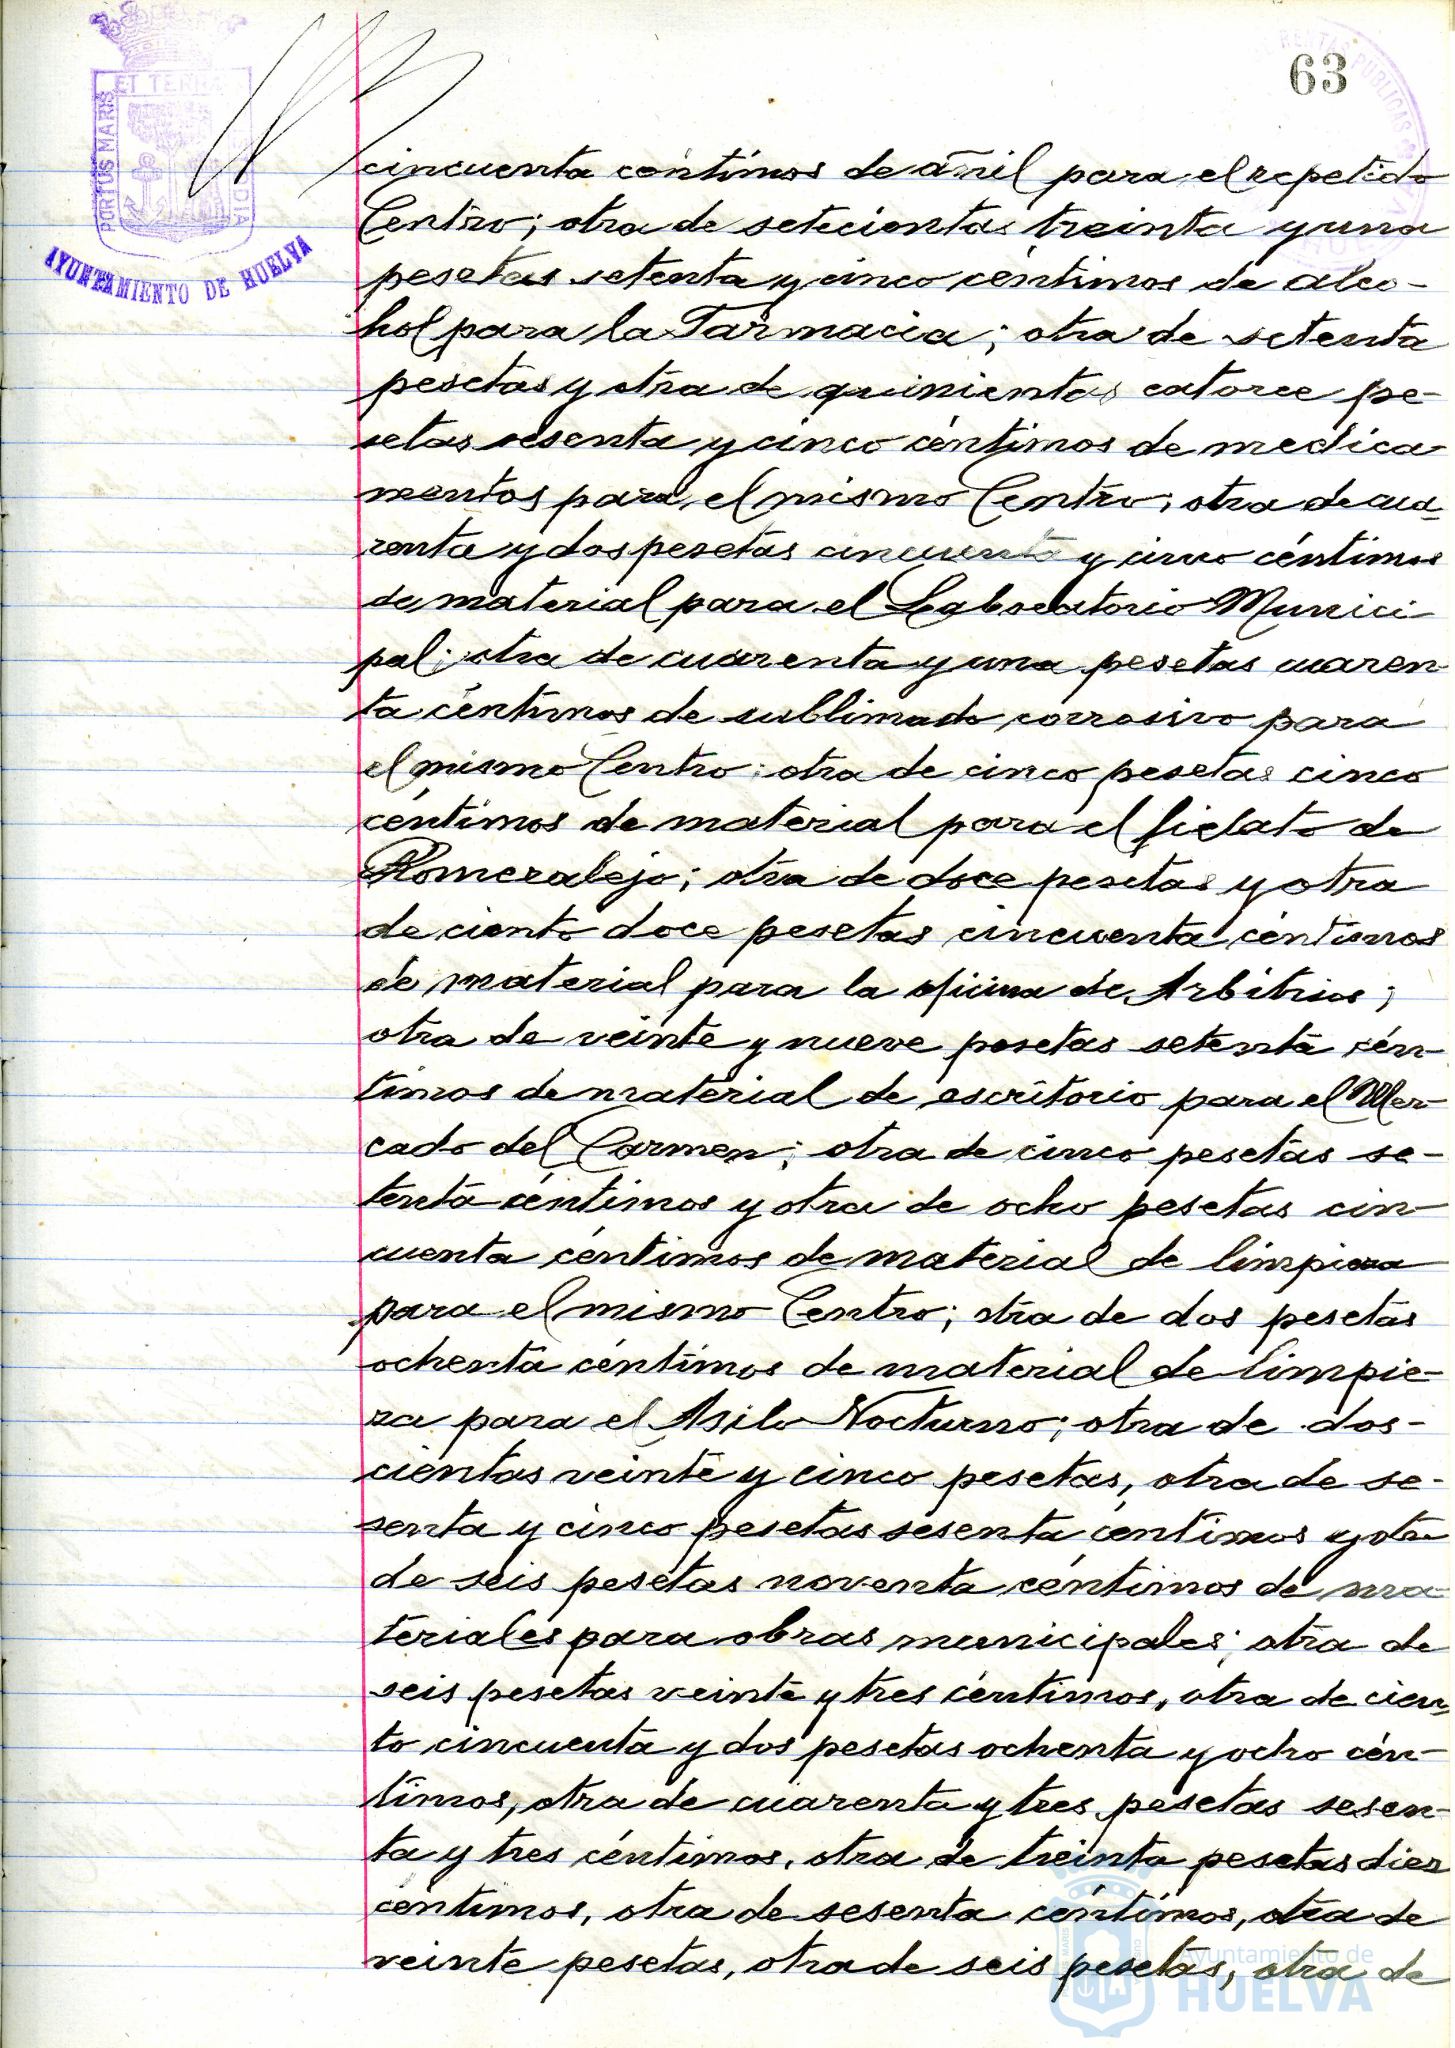 63
ET TERRA
PORTUS MARIS
AYUNTAMIENTO DE HUELVA
cincuenta céntimos de añil para el repetido
Centro; otra de setecientas treinta y una
pesetas setenta y cinco céntimos de alco-
hol para la Farmacia; otra de setenta
pesetas y otra de quinientas catorce pe-
setas sesenta y cinco céntimos de medica-
mentos para el mismo Centro; otra de cua-
renta y dos pesetas cincuenta y cinco céntimos
de material para el Laboratorio Munici
pal; otra de cuarenta y una pesetas cuaren-
ta céntimos de sublimado corrosivo para
el mismo Centro; otra de cinco pesetas cinco
céntimos de material para el fielato de
Romeralejo; otra de doce pesetas y otra
de ciento doce pesetas cincuenta céntimos
de material para la oficina de Arbitrios;
otra de veinte y nueve pesetas setenta cén-
timos de material de escritorio para el Mer-
cado del Carmen; otra de cinco pesetas se-
tenta céntimos y otra de ocho pesetas cin-
cuenta céntimos de material de limpieza
para el mismo Centro; otra de dos pesetas
ochenta céntimos de material de limpie-
za para el Asilo Nocturno; otra de dos-
cientas veinte y cinco pesetas, otra de se-
senta y cinco pesetas sesenta céntimos y otra
de seis pesetas noventa céntimos de ma-
teriales para obras municipales; otra de
seis pesetas veinte y tres céntimos, otra de cien-
to cincuenta y dos pesetas ochenta y ocho cén-
timos, otra de cuarenta y tres pesetas sesen-
ta y tres céntimos, otra de treinta pesetas diez
céntimos, otra de sesenta céntimos, otra de
veinte pesetas, otra de seis pesetas, otra de
Ayuntamiento de
HUELVA